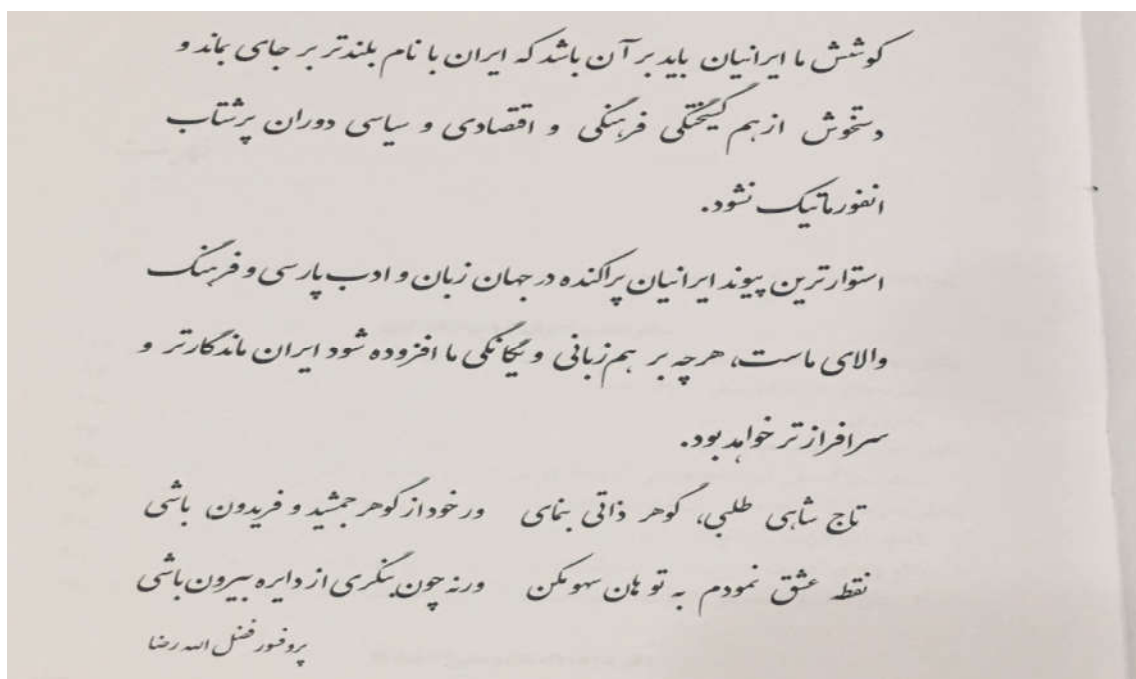 کوشش ما ایرانیان باید بر آن باشد که ایران با نام بلندتر بر جای بماند و
دستخوش از هم گسیختگی فرهنگی و اقتصادی و سیاسی دوران پرشتاب
انفورماتیک نشود.
استوارترین پیوند ایرانیان پراکنده در جهان زبان و ادب پارسی و فرهنگ
والای ماست، هرچه بر هم‌زبانی و یگانگی ما افزوده شود ایران ماندگارتر و
سرافرازتر خواهد بود.
تاج شاهی طلبی، گوهر ذاتی بنمای ور خود از گوهر جمشید و فریدون باشی
نقطه عشق نمودم به تو هان سهو مکن ورنه چون بنگری از دایره بیرون باشی
پروفسور فضل الله رضا